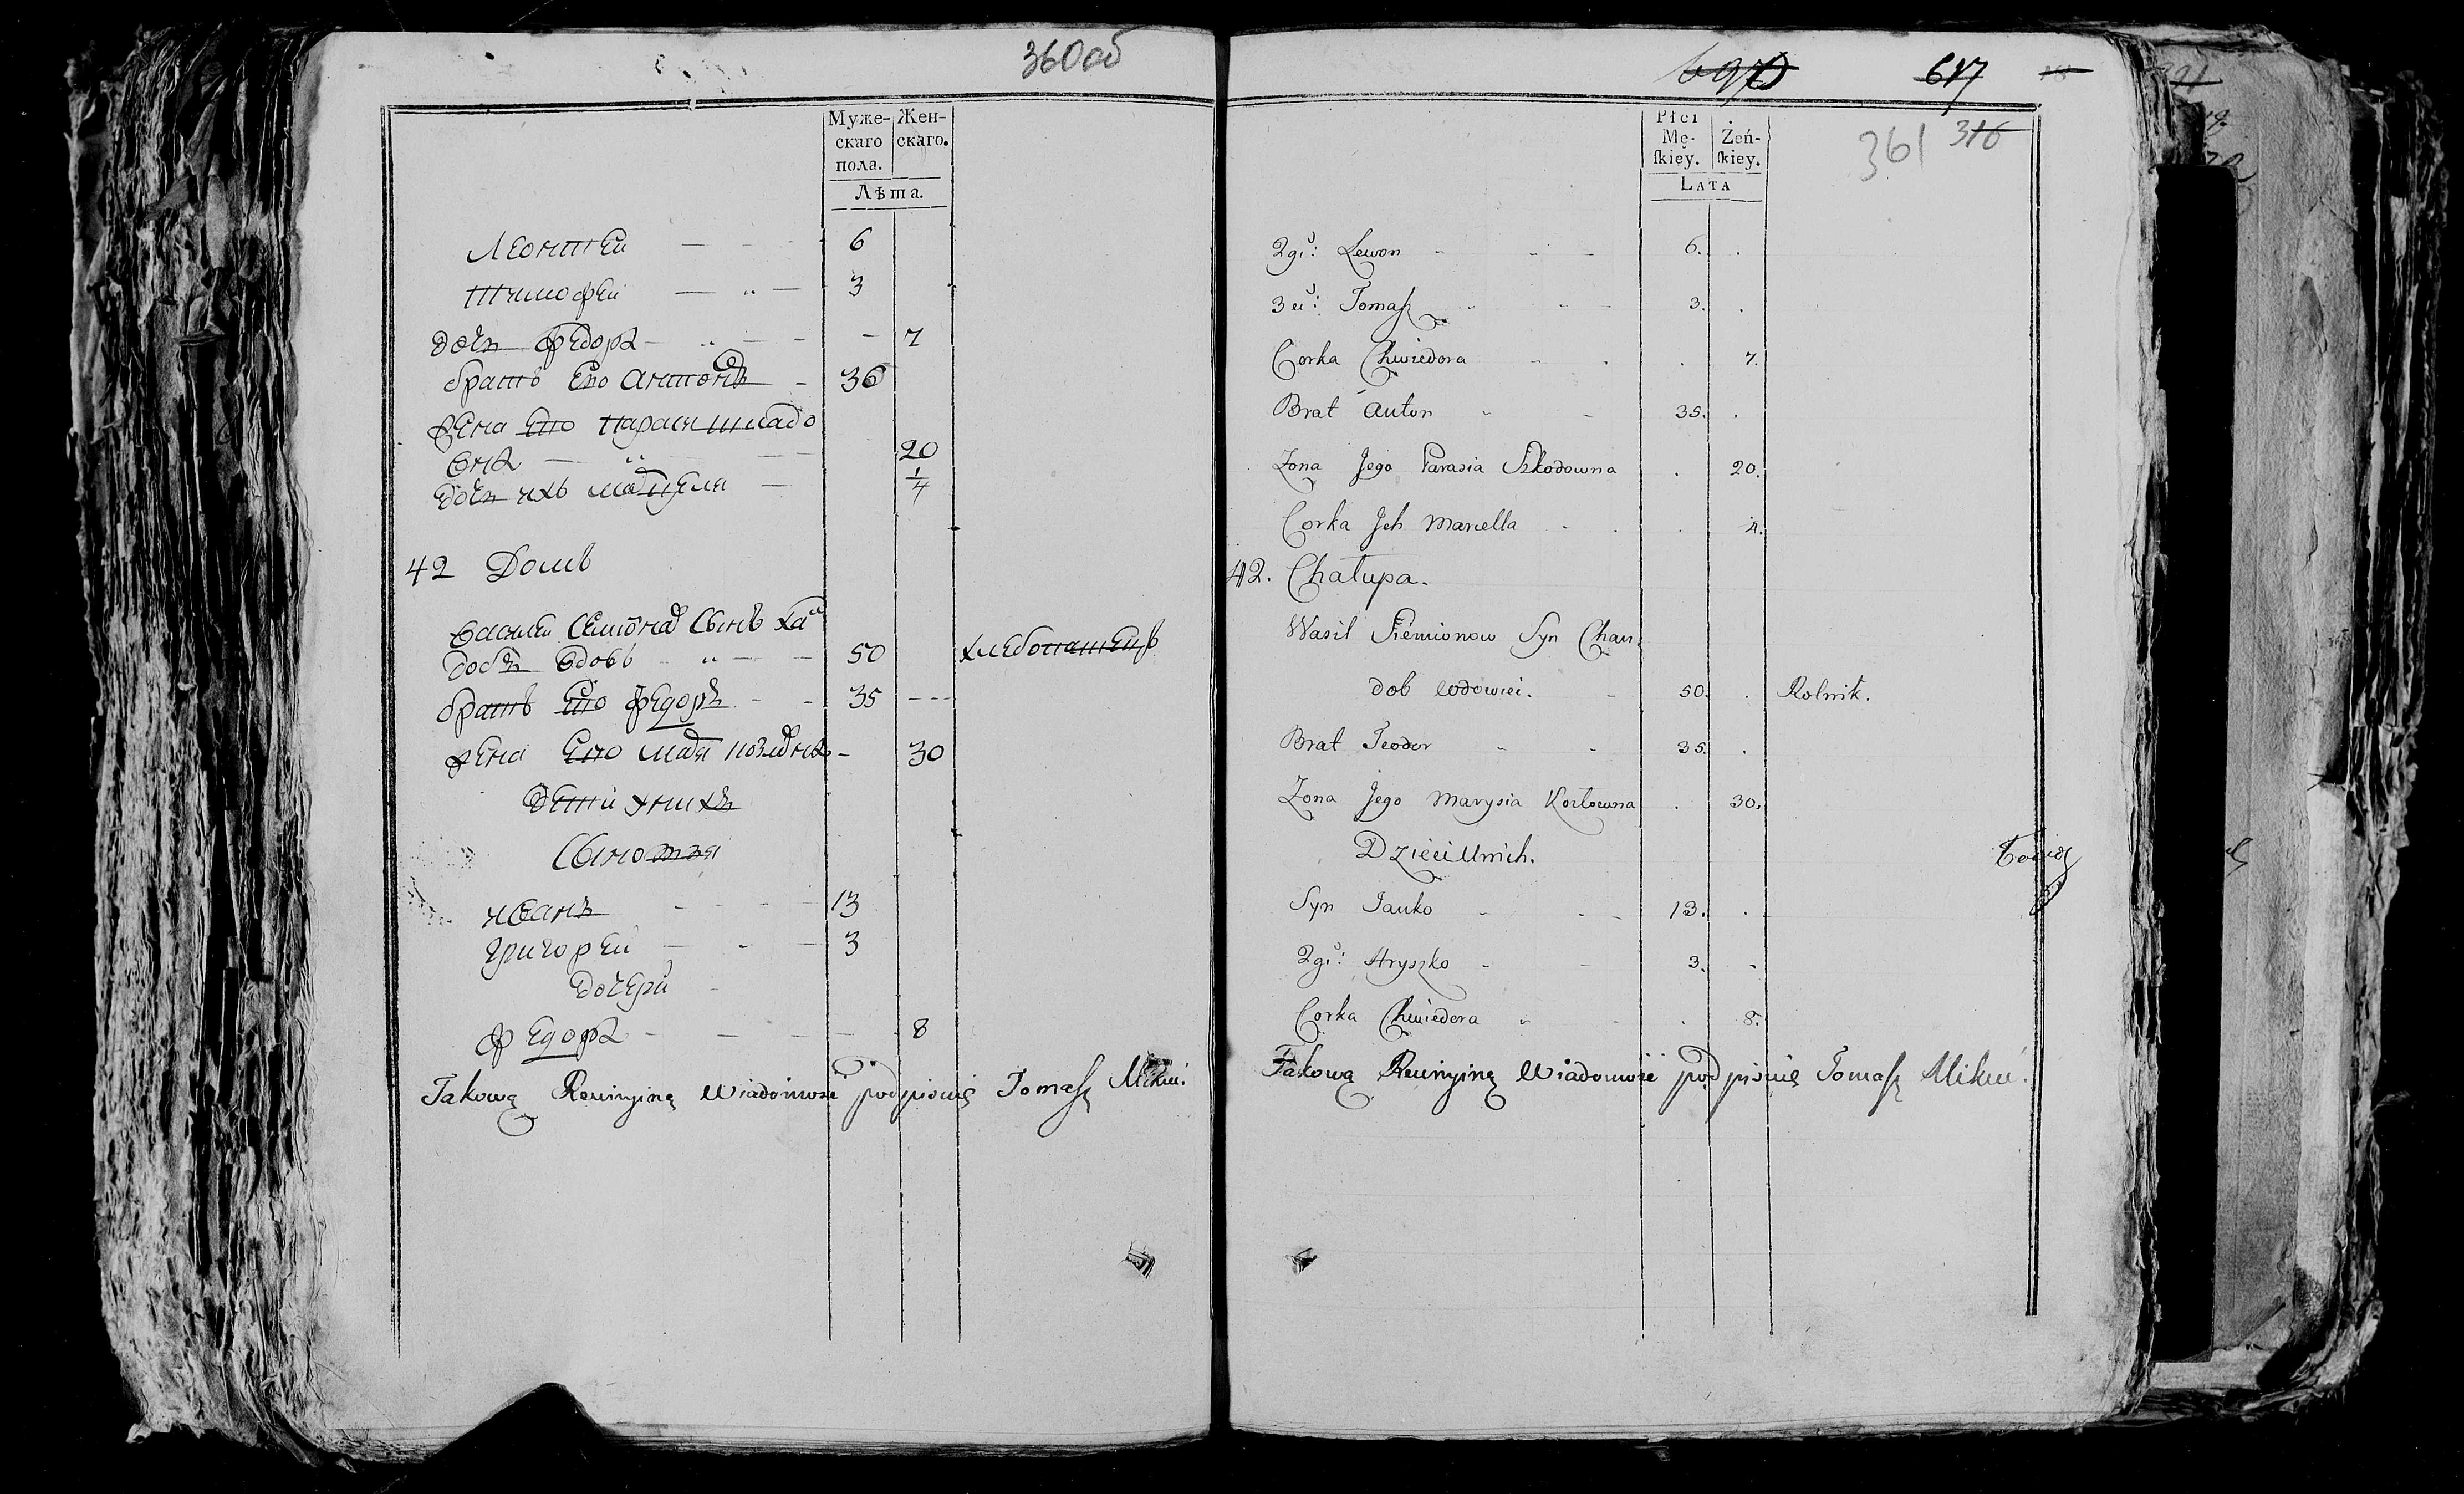 360 об
Муже-
скаго
пола.
Жен-
скаго.
Лѣта.
Леонтей 6
Тимофей 3
дочь Федора 7
братъ Его Антонъ 36
жена Его Парася шкадо
вна 20
дочь ихъ 1/4
42 Домъ
Василей Семіонов Сынъ Хан
добъ вдовъ 50 хлебопашецъ
братъ Его Федоръ 35
жена Его 30
дети у нихъ
Сыновья
иванъ 13
григорей 3
дочери
Федора 8
Takową Rewizyiną Wiadomość podpisuię Tomasz
697
617
361 316
Płci
Mę-
ſkiey.
Żeń-
ſkiey.
Lata
2gi: Lewon 6.
3ci: Tomasz 3.
Corka Chwiedora 7.
Brat Anton 35.
Zona Jego Parasia Szkodowna 20.
Corka Jch Marcella 4.
42. Chałupa.
Wasil Siemionow Syn Chan
dob wdowiec. 50. Rolnik.
Brat Teodor 35.
Zona Jego Marysia Kozłowna 30.
Dzieci Unich.
Syn Janko 13.
2gi: Hryszko 3.
Corka Chwiedora 8.
Takową Rewizyiną Wiadomość podpisuię Tomasz